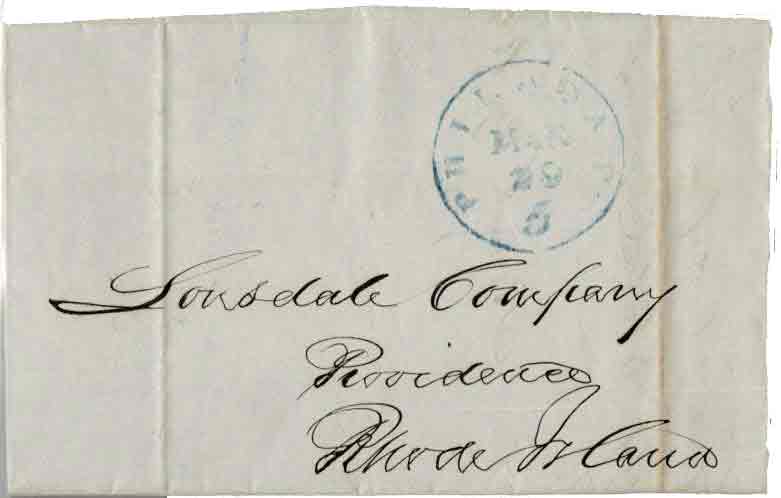 PHILADA Pa.
MAR
29
5
Lonsdale Company
Providence
Rhode Island